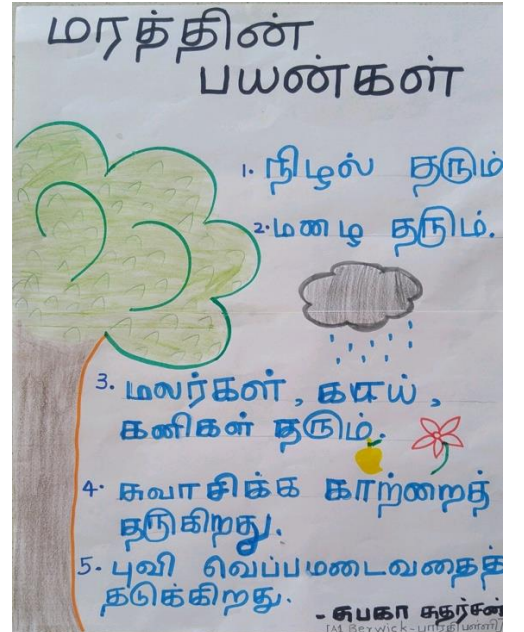 மரத்தின்
பயன்கள்
1. நிழல் தரும்
2. மழை தரும்.
3. மலர்கள், காய்,
கனிகள் தரும்.
4. சுவாசிக்க காற்றைத்
தருகிறது.
5. புவி வெப்பமடைவதைத்
தடுக்கிறது.
- சுபகா சுதர்சன்
Berwick -